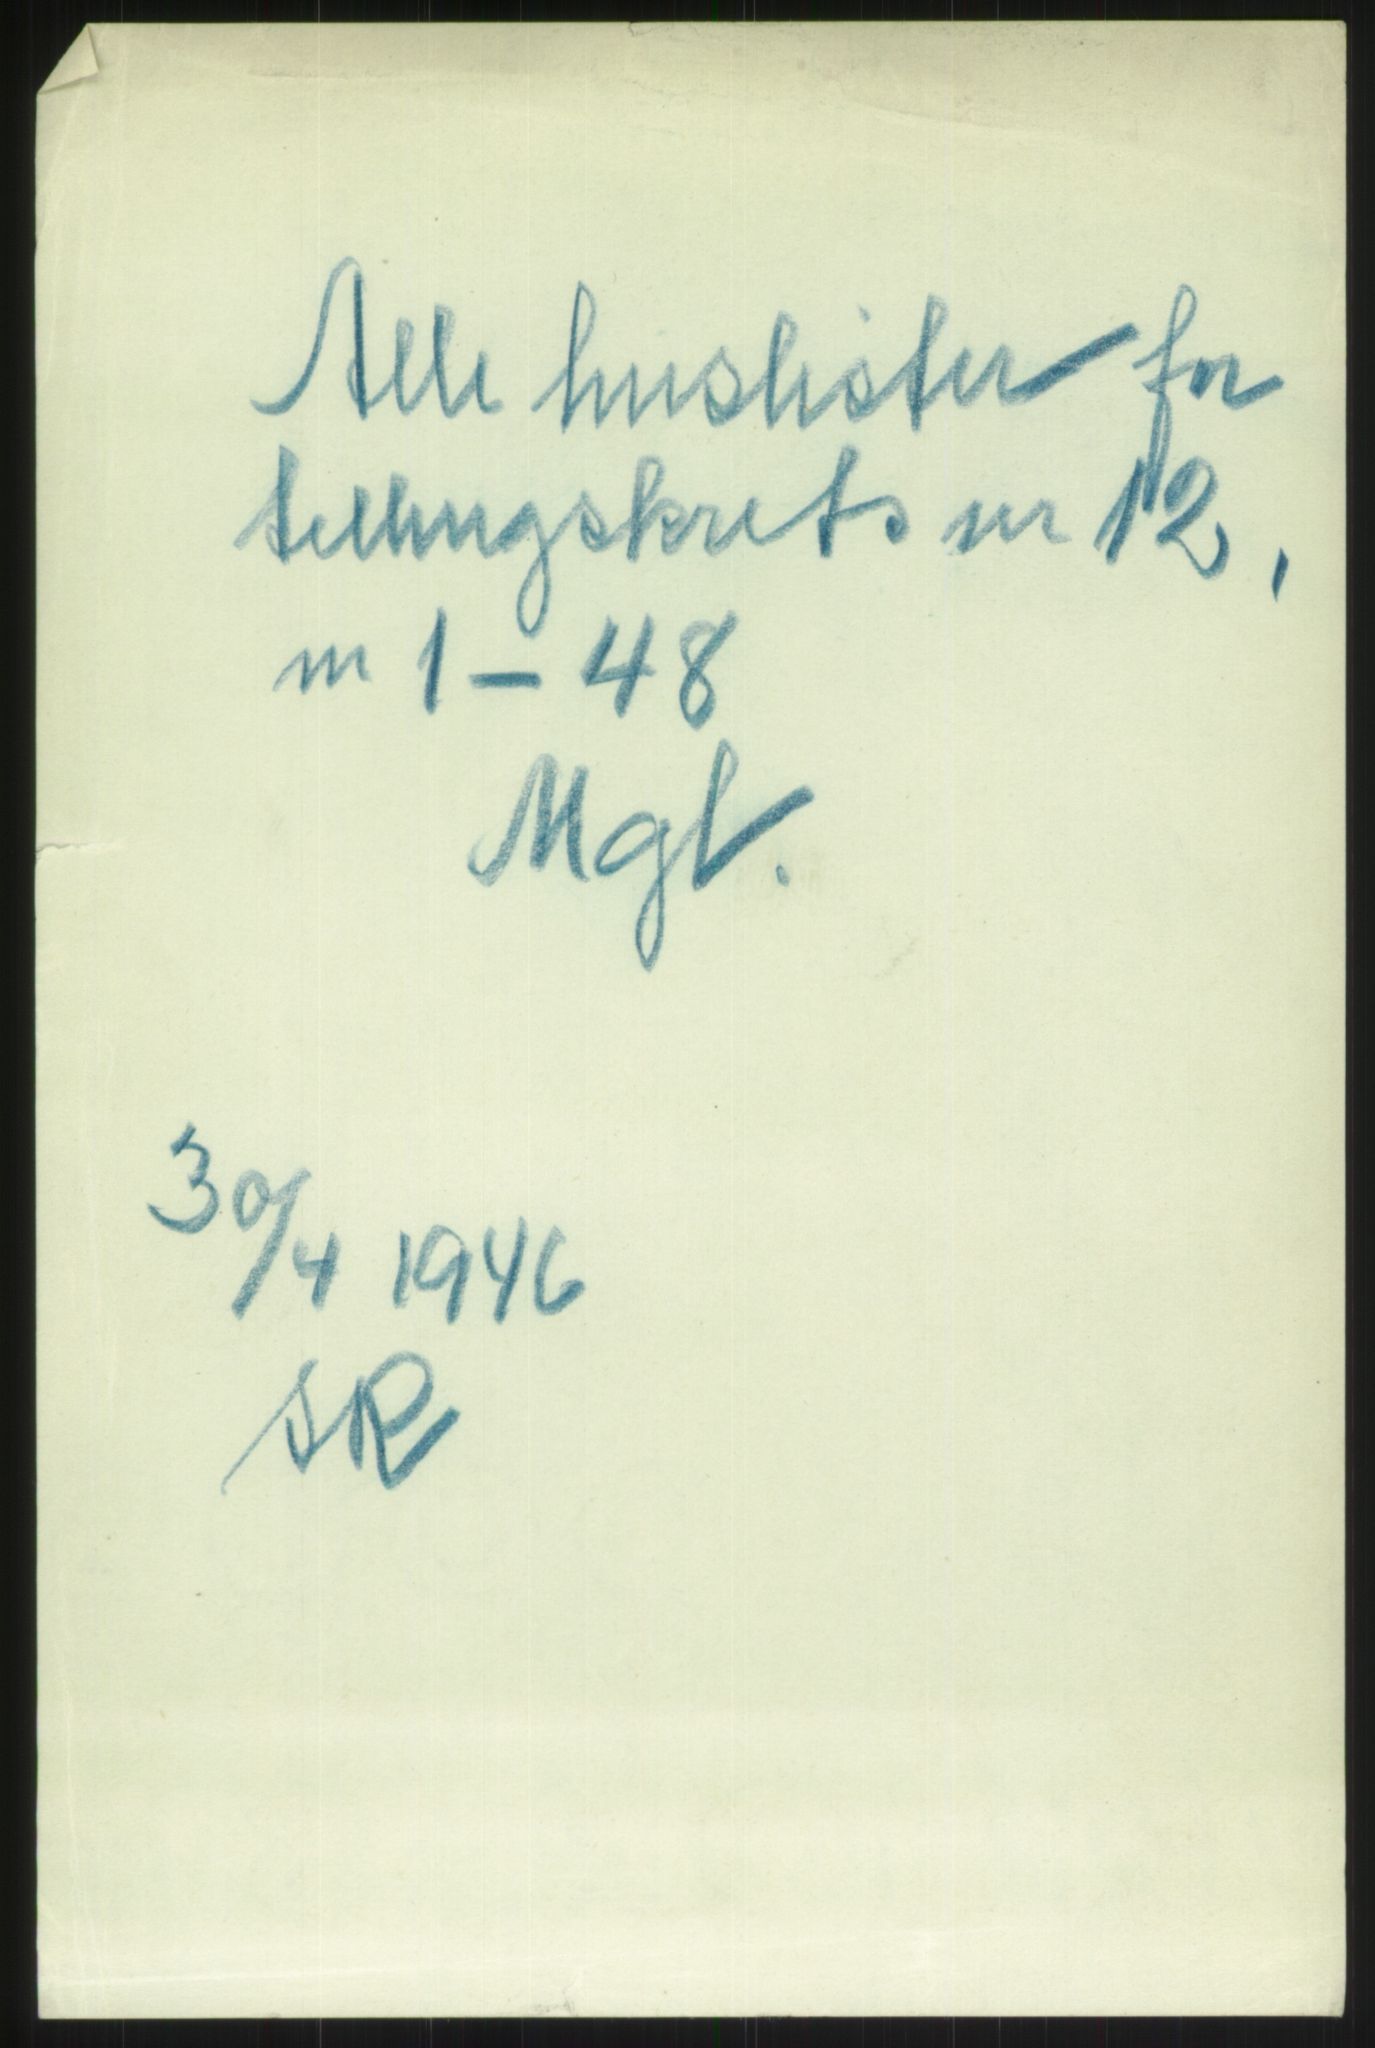 Alle huslister for
tellingskrets nr 12,
nr 1 – 48
Mgl.
30/4 1946
SR